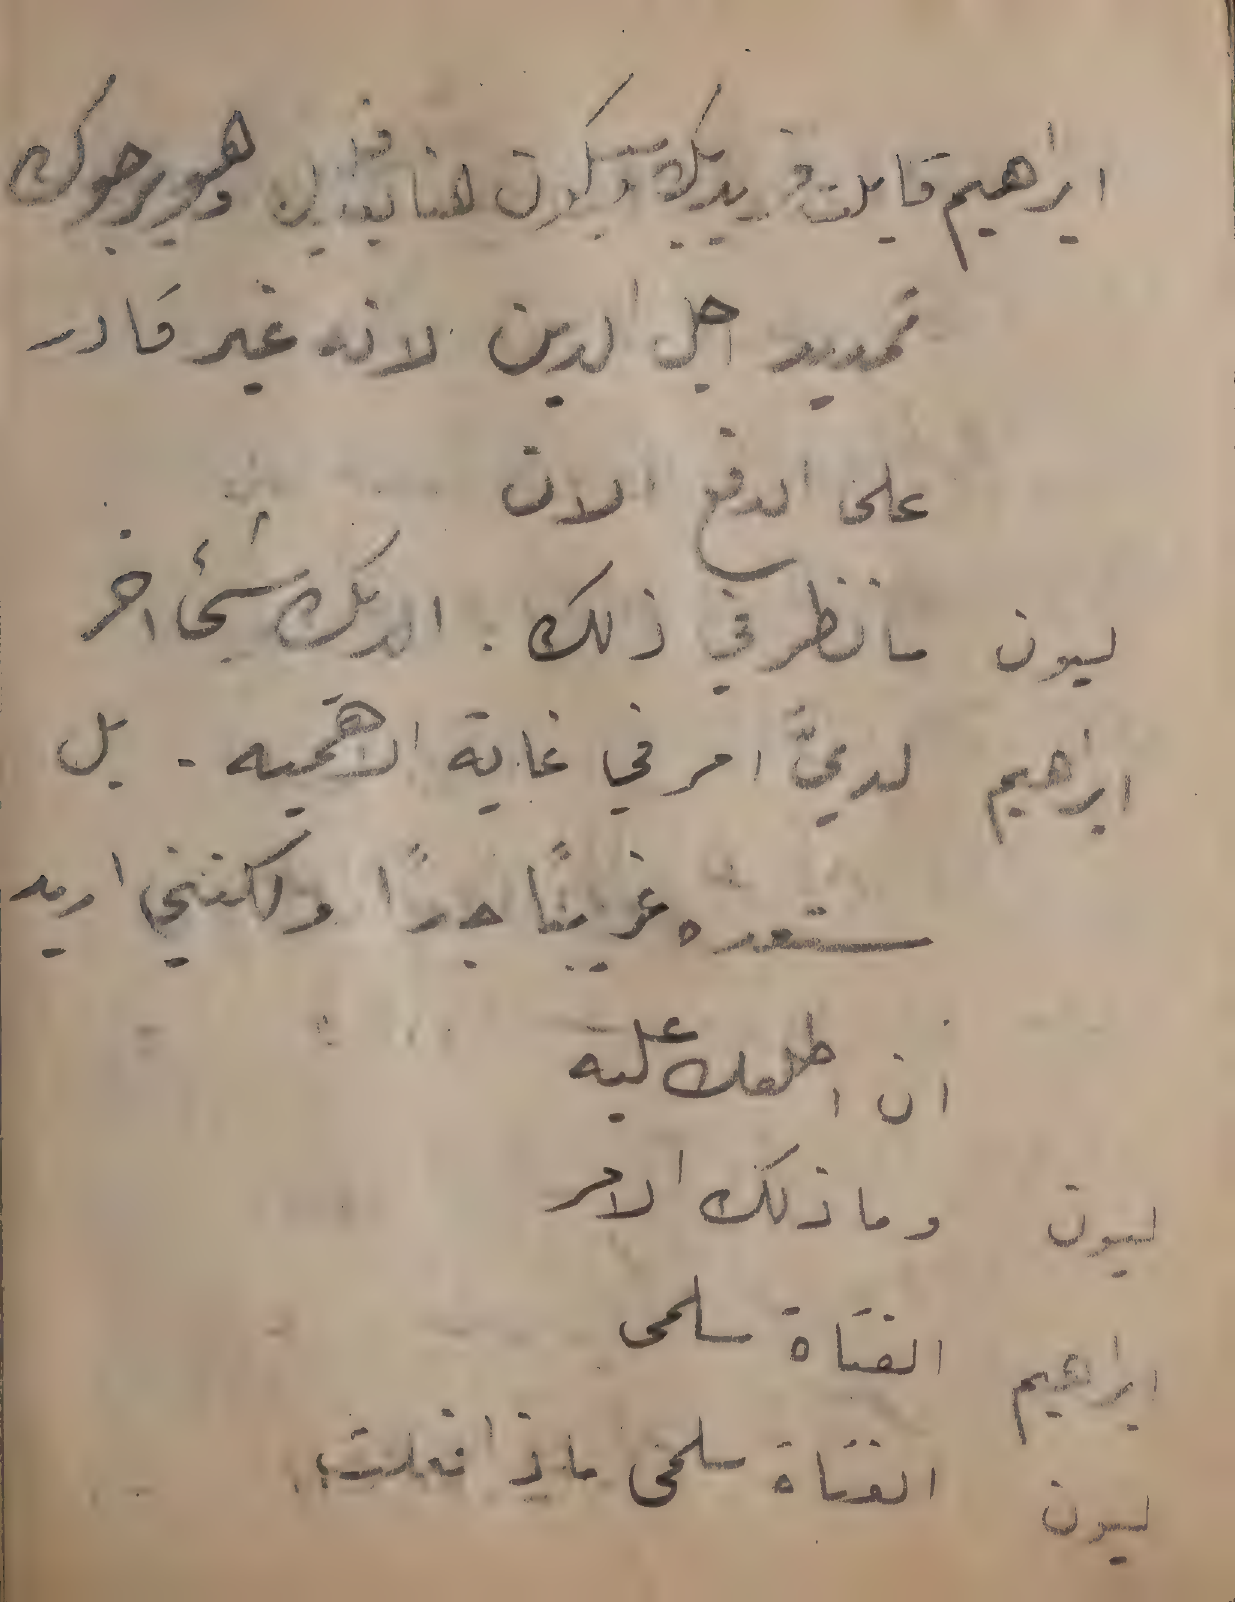 ابراهيم قابلت فريديك وسيكون هنا بعد قليل وهو يرجوك
تمديد اجل الدين لانه غير قادر
على الدفع الان
ليون سانظر في ذلك . الديك شيئا اخر
ابراهيم لديَّ امر في غاية الاهميه - بل
ستعده غريبًا جدًا ولكنني اريد
ان اطلعك عليه
ليون وما ذلك الامر
ابراهيم الفتاة سلمى
ليون الفتاة سلمى ماذا فعلت؟